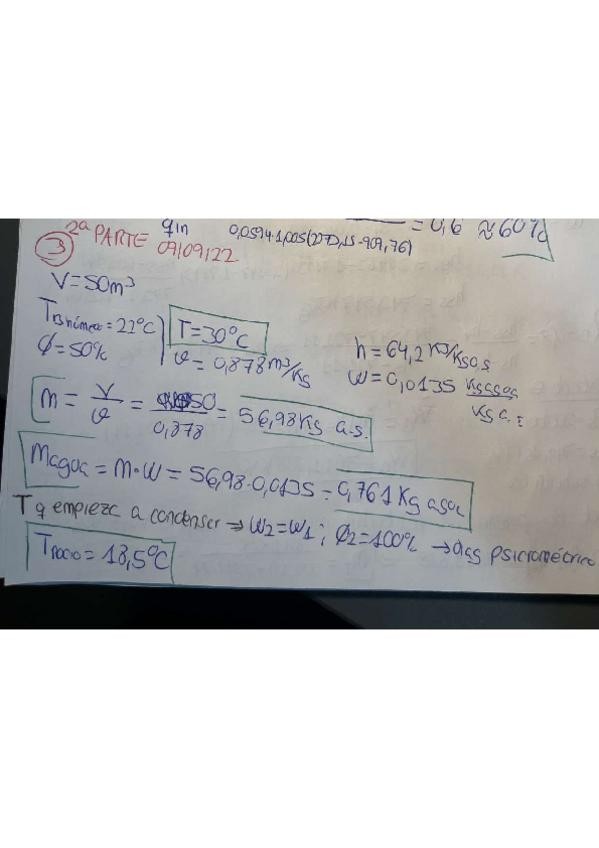 = 0,6 ≈ 60%
qin 0,0594·1,005(2272,15-909,76)
3 2ª PARTE 09/09/22
V=50m³
TBhúmeo=22°C T=30°C
φ=50% v=0,878m³/Kg h=64,2 KJ/Kga.s
w=0,0135 Kgagua/Kg a.s
m = V/v = 50/0,878 = 56,98Kg a.s.
Magua = m·w = 56,98·0,0135 = 0,761Kg agua
T q empieza a condenser ⇒ w2=w1 ; φ2=100% → diag psicrométrico
Trocio = 18,5°C